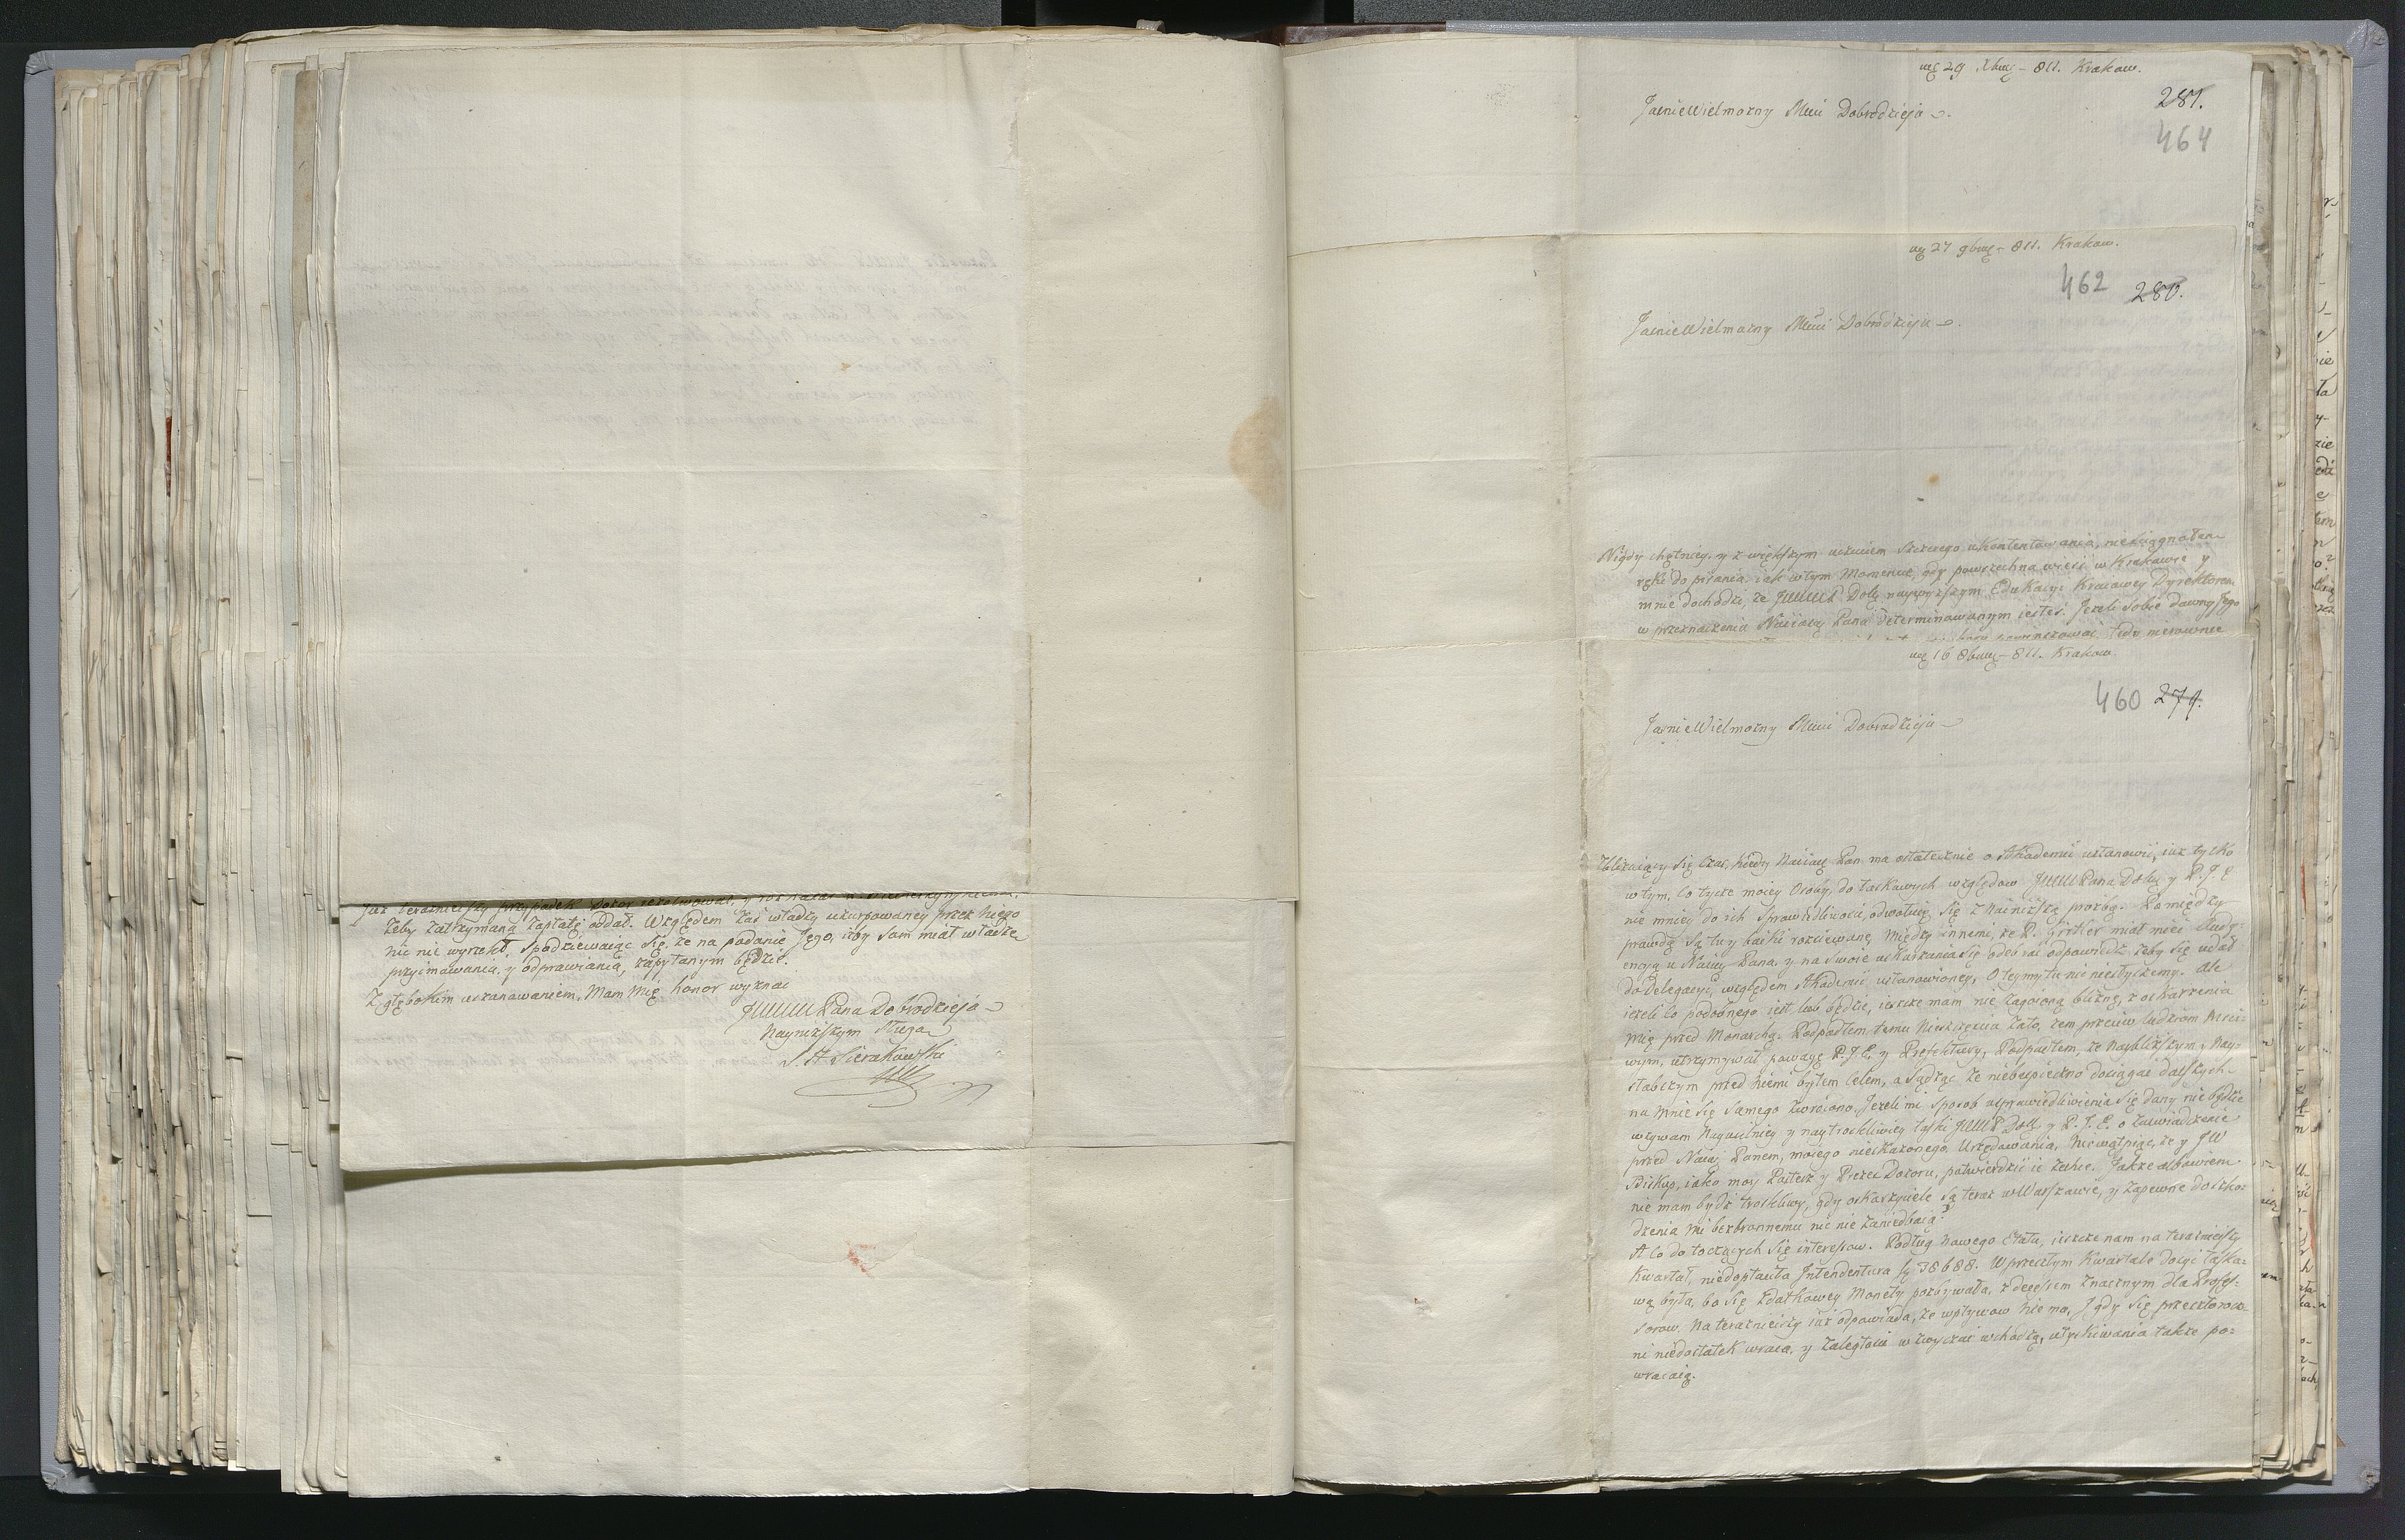 żeby zatrzymaną zapłatę oddał. Względem zaś władzy uzurpowaney przez niego
nic nie wyrzekł, spodziewaiąc się, że na podanie Jego, iżby sam miał władze
przyimowania, y odprawiania, zapytanym będzie.
Z głębokim uszanowaniem, Mam mię honor wyznać
JWWPana Dobrodzieja
Nayniższym Sługą
S. H. Sierakowski
281.
Krakow.
464
JaśnieWielmożny Mści Dobrodzieju
27 9bra - 811. Krakow.
462 280.
JaśnieWielmożny Mści Dobrodzieju
Nigdy chętniey, y z większym uczuciem szczerego ukontentowania, nie ściągnąłem
ręki do pisania, iak wtym Momencie, gdy powszechna wieść w Krakowie y
mnie dochodzi, że Dobr. naywyższym Edukacyi Kraiowey Dyrektorem
w przeznaczeniu Nayiaś. Pana determinowanym iesteś. Jeżeli sobie dawney Jego
16 8bra - 811. Krakow.
460 279.
JaśnieWielmożny Mści Dobrodzieju
Zbliżaiący się Czas, kiedy Nayiaś. Pan ma ostatecznie o Akademii ustanowić, iuż tylko
wtym, Co tycze moiey Osoby, do łaskawych względow Pana Dobr. y P. J. E
nie mniey do ich Sprawiedliwości, odwołuię się z Nayniższą prozbą. Pomiędzy
prawdą są tu y baiki rozsiewane, Między innemi, że P. Girtler miał mieć Audy-
encyą u Nayiaś. Pana, y na swoie uskarżania się odebrać odpowiedź, żeby się udał
do Delegacyi, względem Akademii ustanowioney, O tey my tu nic niesłyszemy. Ale
ieżeli Co podobnego iest, lub będzie, ieszcze mam nie zagoioną bliznę, z oskarżenia
mię przed Monarchą. Podpadłem temu Nieszczęściu zato, żem przeciw ludziom Mści-
wym, utrzymywał powagę P. J. E. y Prefektury, Podpadłem, że Nayblizszym y Nay-
słabszym przed niemi byłem Celem, a sądząc że niebespieczno dosięgać dalszych
na mnie się samego zwrócono. Jeżeli mi sposob usprawiedliwienia się dany nie będzie
wzywam Nayusilniey y naytroskliwiey łaski Dobr. y P. J. E. o zaświadczenie
przed Nayiaś. Panem, moiego nieskażonego Urzędowania, Niewątpiąc, że y JW
Biskup, iako moy Pasterz y Prezes Dozoru, potwierdzić ie zechce. Jakże albowiem
nie mam bydź troskliwy, gdy oskarżyciele są teraz w Warszawie, y zapewne do szko-
dzenia mi bezbronnemu nic nie zaniedbaią?
A Co do toczących się interessow. Podług Nowego Etatu, ieszcze nam na teraźnieyszy
Kwartał, niedopłaciła Intendentura 38688. W przeszłym Kwartale dosyć łaska-
wą była, bo się zdatkowey Monety pozbywała, z decessem znacznym dla Profes-
sorow. Na teraźnieyszy iuż odpowiada, że wpływow nie ma, J gdy się przeszłorocz-
ni niedostatek wraca, y zaległości w zwyczai wchodzą, utyskiwania także po-
wracaią.